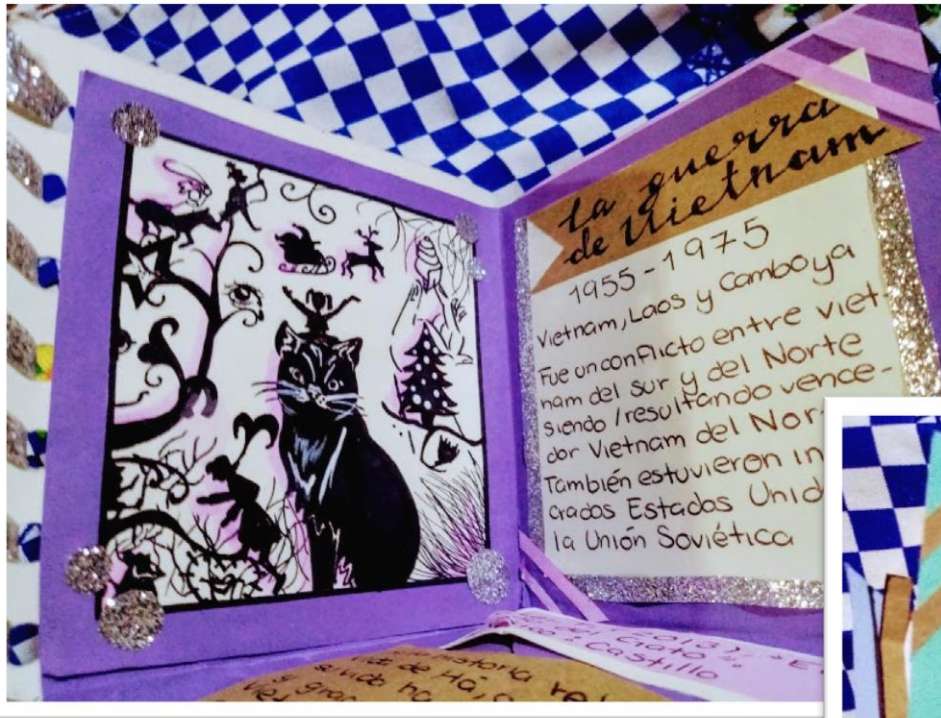 la guerra
de Vietnam
1955-1975
Vietnam, Laos y Camboya
Fue un conflicto entre viet-
nam del sur y del Norte
siendo/resultando vence-
dor Vietnam del Nor
También estuvieron in
crados Estados Unid
la Unión Soviética
Castillo
historia
de Há,